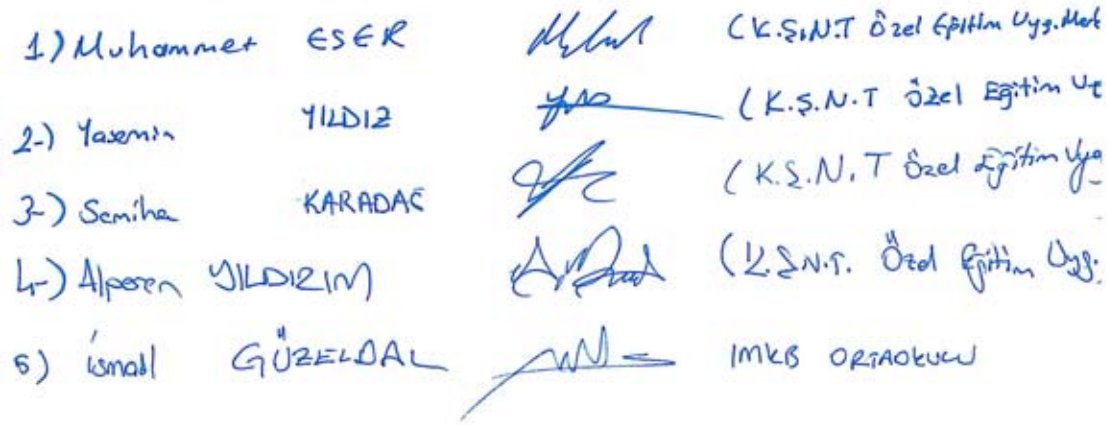 1) Muhammet ESER (K.Ş.N.T Özel Eğitim Uyg. Merk
2-) Yasemin YILDIZ (K.Ş.N.T Özel Eğitim Uy
3-) Semiha KARADAĞ (K.Ş.N.T Özel Eğitim Uyg
4-) Alperen YILDIRIM (K.Ş.N.T. Özel Eğitim Uyg.
5) İsmail GÜZELDAL IMKB ORTAOKULU